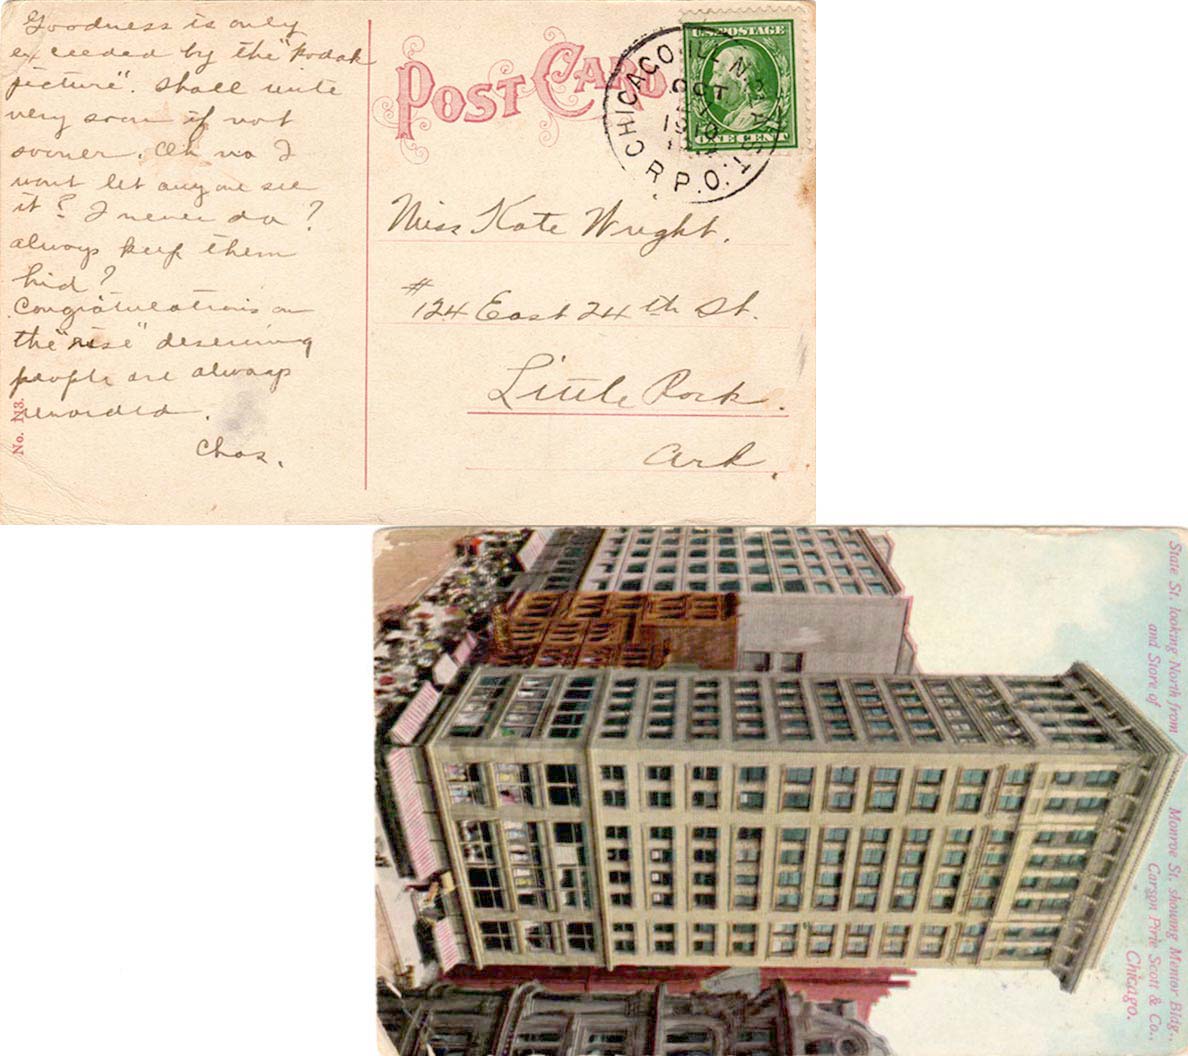 Goodness is only
exceeded by the "Kodak
picture". Shall write
very soon if not
sooner. Oh no I
wont let anyone see
it? I never do?
always keep them
hid?
Congratulations on
the "rise" deserving
people are always
rewarded.
Chas.
No. N3.
POST CARD.
U.S. POSTAGE
ONE CENT
CHICAGO, ILL. N.
OCT
1910
R.P.O.
Miss Kate Wright.
#124 East 24th St.
Little Rock.
Ark.
State St. looking North from Monroe St. showing Mentor Bldg.,
and Store of Carson Pirie Scott & Co.,
Chicago.